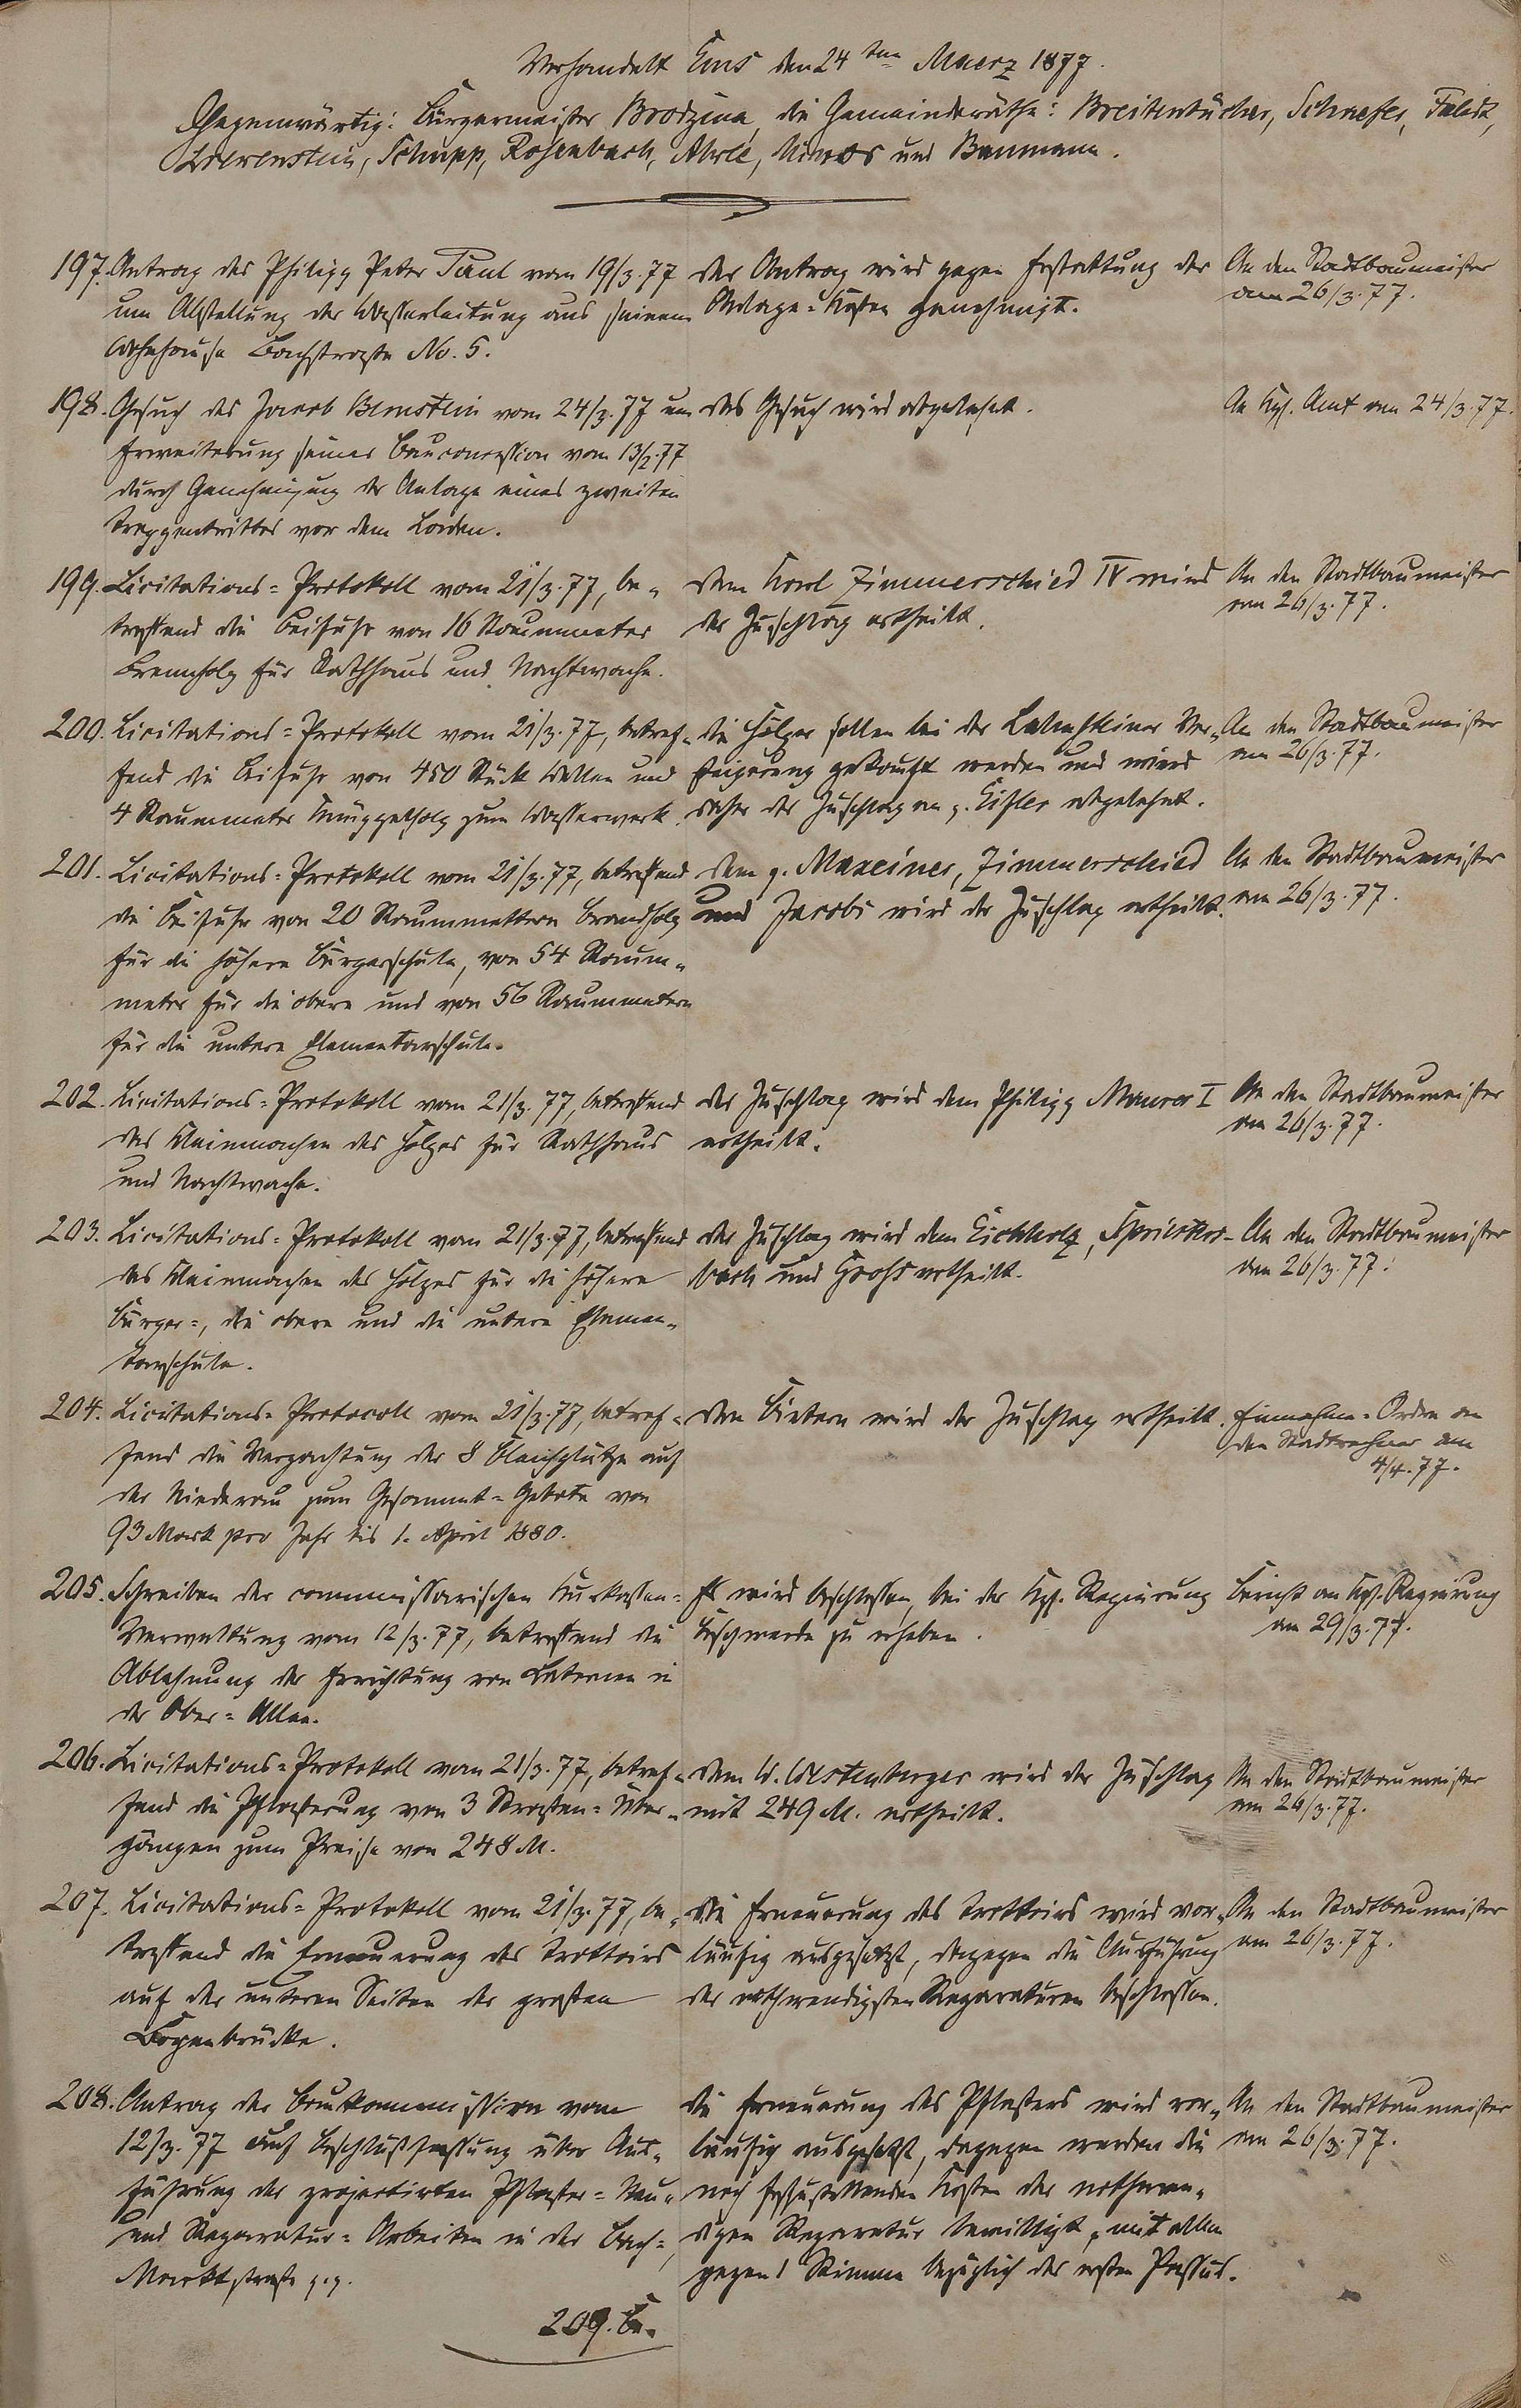 Verhandelt Ems den 24ten Maerz 1877.
Gegenwärtig: Bürgermeister Brodzina, die Gemeinderäthe: Breitenbücher, Schaefer,
Loewenstein, Schupp, Rosenbach, Ahrlé, und Baumann.
197. Antrag des Philipp Peter Paul vom 19/3.77
um Abstellung der Wasserleitung aus seinem
Wohnhause Bachstraße No. 5.
Der Antrag wird gegen Erstattung der
Anlage=Kosten genehmigt.
An den Stadtbaumeister
am 26/3.77.
198. Gesuch des Jacob Bernstein vom 24/3.77 um
Erweiterung seiner Bauconcession vom 13/2.77
durch Genehmigung der Anlage eines zweiten
Treppentrittes vor dem Laden.
Das Gesuch wird abgelehnt.
An Kgl. Amt am 24/3.77.
199. Licitations=Protokoll vom 21/3.77, be=
treffend die Beifuhr von 16 Raummeter
Brennholz für Rathhaus und Nachtwache.
Dem Karl Zimmerschied IV wird
der Zuschlag ertheilt.
An den Stadtbaumeister
am 26/3.77.
200. Licitations=Protokoll vom 21/3.77, betref=
fend die Beifuhr von 450 Stück Wellen und
4 Raummeter Knüppelholz zum Wasserwerk.
Die Hölzer sollen bei der Lahnsteiner Ver=
steigerung gekauft werden und wird
daher der Zuschlag an p. Eisler abgelehnt.
An den Stadtbaumeister
am 26/3.77.
201. Licitations=Protokoll vom 21/3.77, betreffend
die Beifuhr von 20 Raummetern Brandholz
für die höhere Bürgerschule, von 54 Raum=
meter für die obere und von 56 Raummetern
für die untere Elementarschule.
Dem p. Maxeiner, Zimmerschied
und Jacobi wird der Zuschlag ertheilt.
An den Stadtbaumeister
am 26/3.77.
202. Licitations=Protokoll vom 21/3.77, betreffend
das Kleinmachen des Holzes für Rathhaus
und Nachtwache.
Der Zuschlag wird dem Philipp Maurer I
ertheilt.
An den Stadtbaumeister
am 26/3.77.
203. Licitations=Protokoll vom 21/3.77, betreffend
das Kleinmachen des Holzes für die höhere
Bürger=, die obere und die untere Elemen=
tarschule.
Der Zuschlag wird dem Eichholz, Spriesters=
bach und Groß ertheilt.
An den Stadtbaumeister
den 26/3.77.
204. Licitations=Protocoll vom 21/3.77, betref=
fend die Verpachtung der 8 Bleichplätze auf
der Niederau zum Gesammt=Gebote von
93 Mark pro Jahr bis 1. April 1880.
Den Bietern wird der Zuschlag ertheilt.
Einnahme=Ordre an
den Stadtrechner am
4/4.77.
205. Schreiben der commissarischen Kurkassen=
Verwaltung vom 12/3.77, betreffend die
Ablehnung der Errichtung von Laternen in
der Ober=Allee.
Es wird beschlossen, bei der Kgl. Regierung
Beschwerde zu erheben.
Bericht an Kgl. Regierung
am 29/3.77.
206. Licitations=Protokoll vom 21/3.77, betref=
fend die Pflasterung von 3 Straßen=Über=
gängen zum Preise von 248 M.
Dem W. Westenberger wird der Zuschlag
mit 249 M. ertheilt.
An den Stadtbaumeister
am 26/3.77.
207. Licitations=Protokoll vom 21/3.77, be=
treffend die Erneuerung des Trottoirs
auf der unteren Seiten der großen
Bogenbrücke.
Die Erneuerung des Trottoirs wird vor=
läufig ausgesetzt, dagegen die Ausführung
der nothwendigsten Reparaturen beschlossen.
An den Stadtbaumeister
am 26/3.77.
208. Antrag der Baukommission vom
12/3.77 auf Beschlußfassung über Aus=
führung der projectirten Pflaster=Neu=
und Reparatur=Arbeiten in der Bach=,
Marktstraße p.p.
Die Erneuerung des Pflasters wird vor=
läufig ausgesetzt, dagegen werden die
noch festzustellenden Kosten der nothwen=
digen Reparatur bewilligt, mit allen
gegen 1 Stimme bezüglich des ersten Passus.
An den Stadtbaumeister
am 26/3.77.
209.